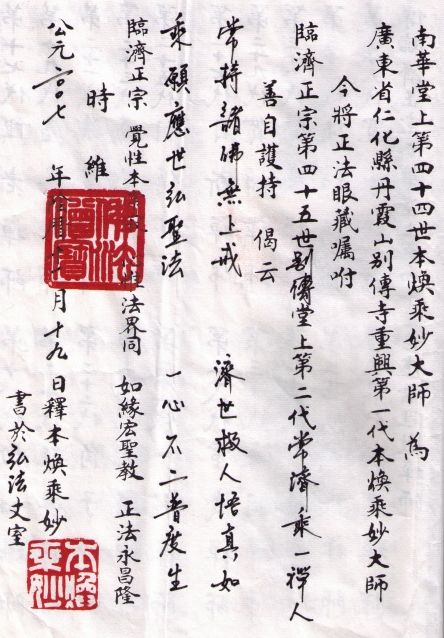 南華堂上第四十四世本煥乘妙大師 為
廣東省仁化縣丹霞山別傳寺重興第一代本煥乘妙大師
今將正法眼藏囑咐
臨濟正宗第四十五世別傳堂上第二代常濟乘一禪人
善自護持 偈云
常持諸佛無上戒 濟世救人悟真如
乘願應世弘聖法 一心不二普度生
臨濟正宗 覺性本 法界同 如緣宏聖教 正法永昌隆
時維
公元二〇〇七 年 月十九日釋本煥乘妙
書於弘法丈室
佛法僧寶
本煥乘妙